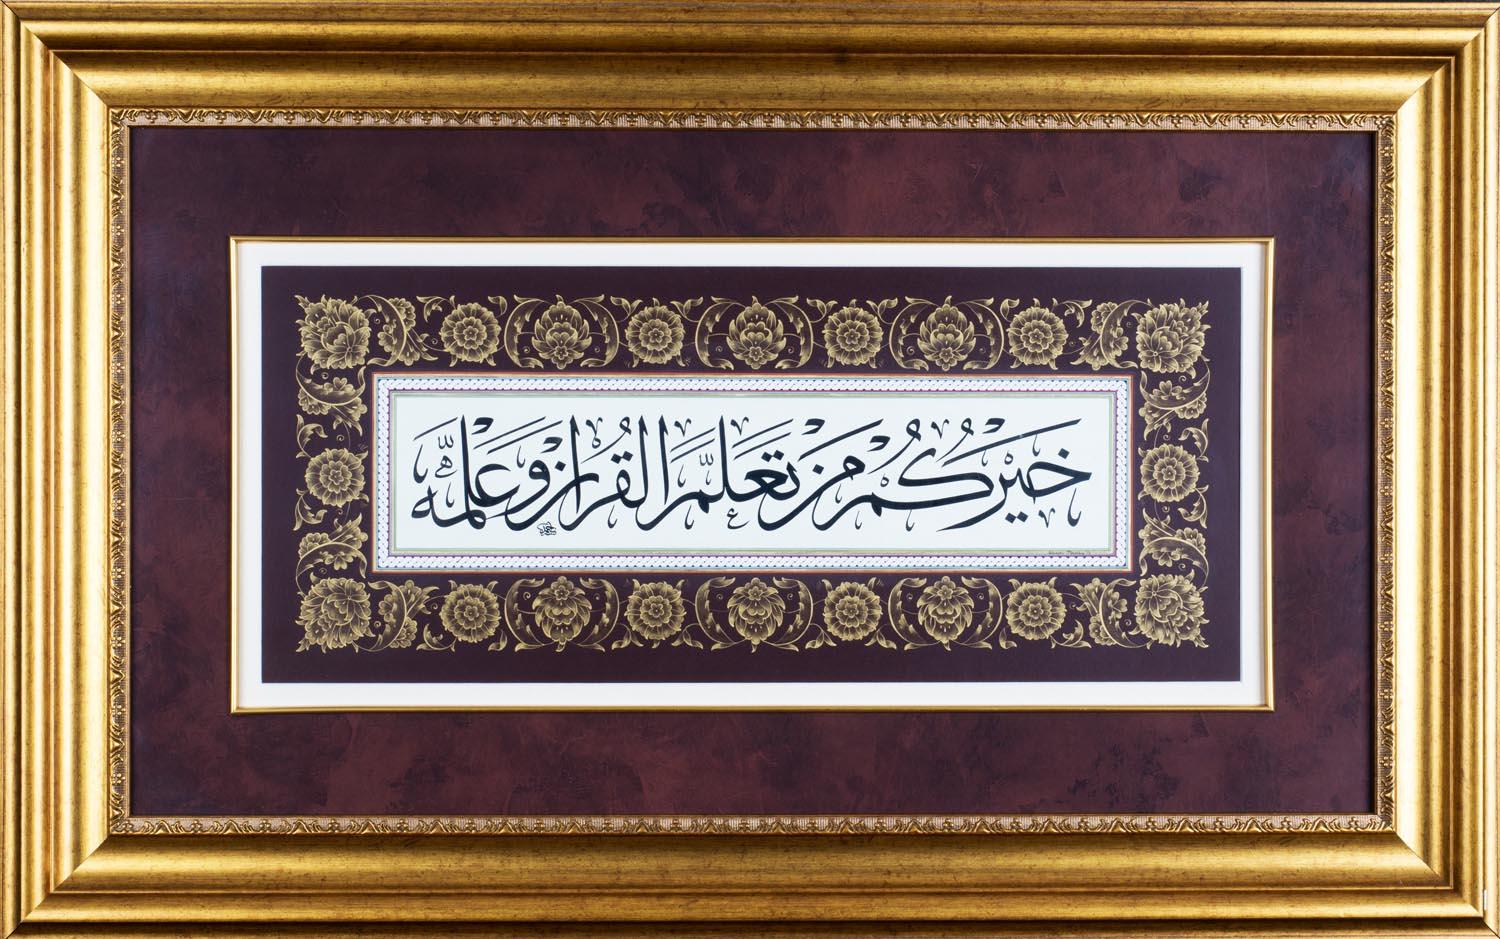 خَيْرُكُمْ مَنْ تَعَلَّمَ الْقُرْاٰنَ وَعَلَّمَهُ